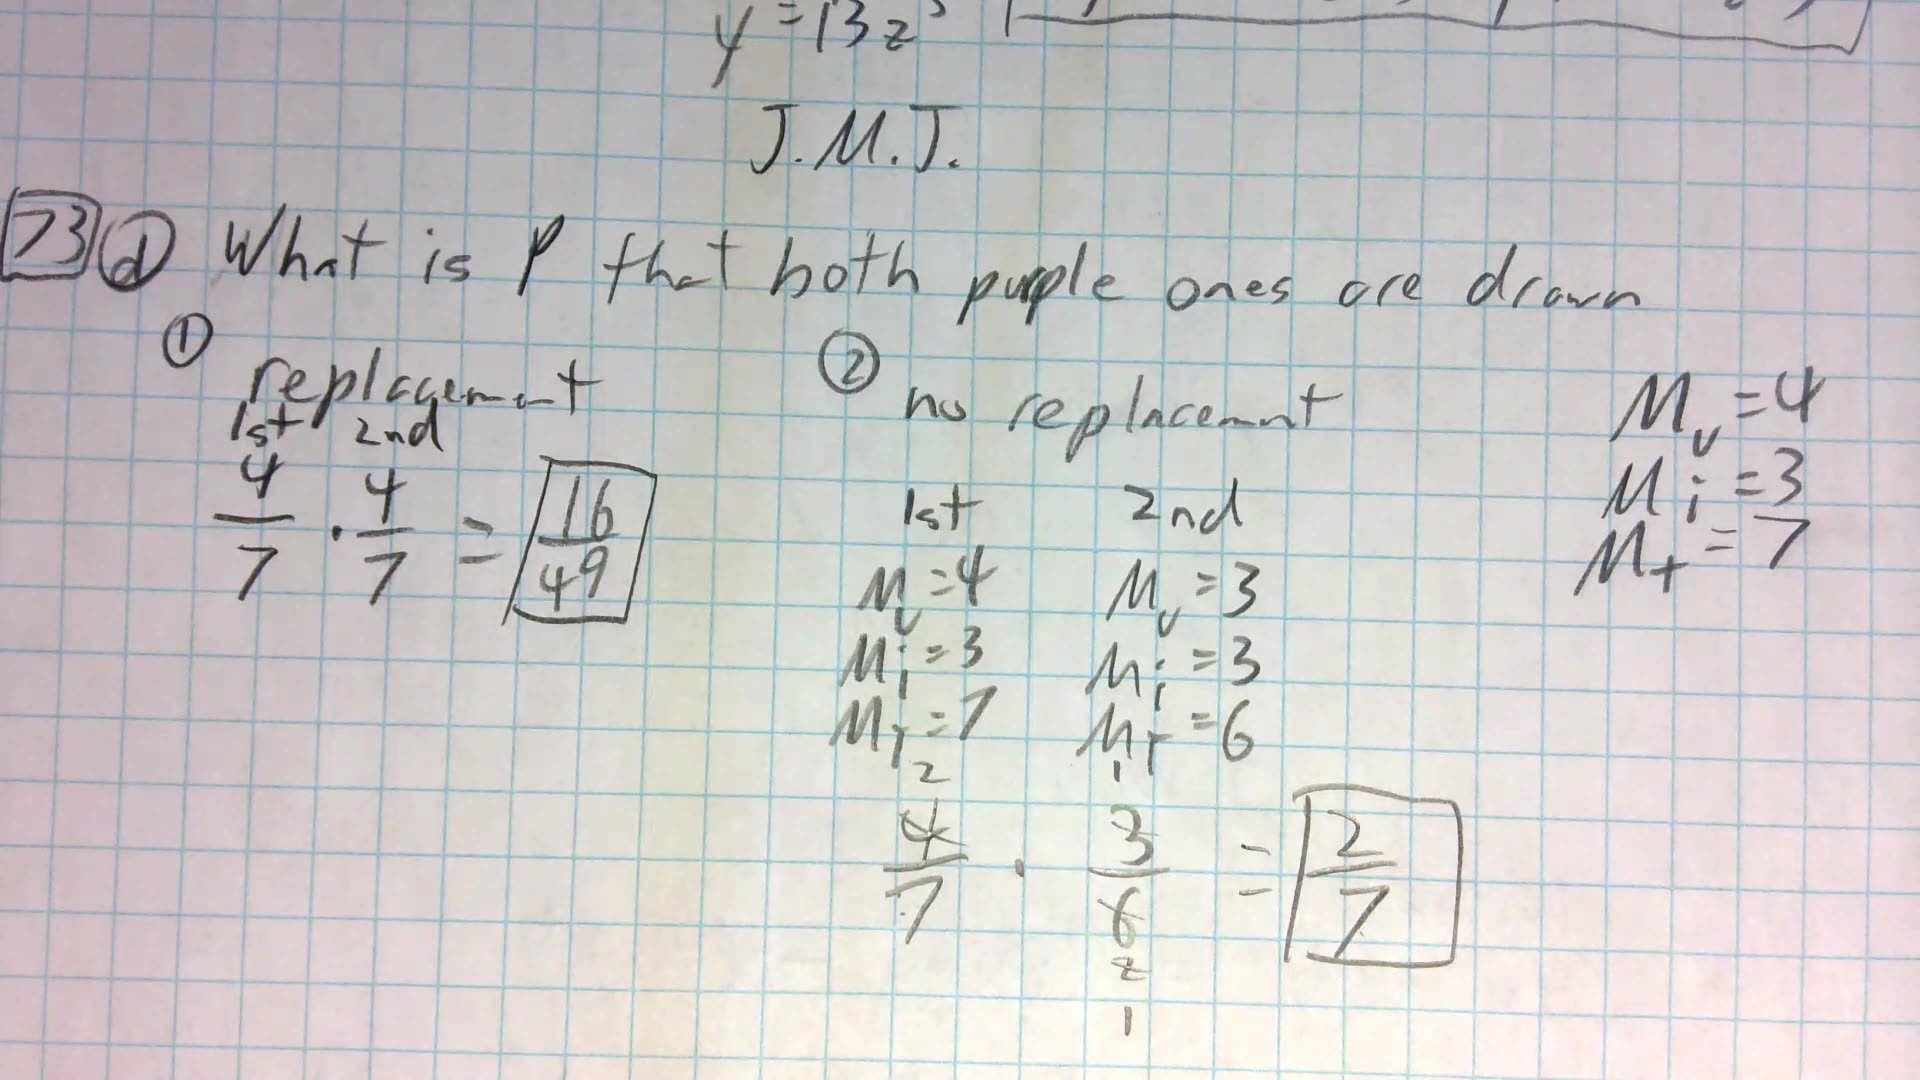 y = 13z
J.M.J.
73 d What is P that both purple ones are drawn
① replacement
1st 2nd
4/7 · 4/7 = 16/49
② no replacemnt
1st 2nd
Mv = 4 Mv = 3
Mi = 3 Mi = 3
MT = 7 MT = 6
2 1
4/7 · 3/6 = 2/7
2
1
Mv = 4
Mi = 3
Mt = 7